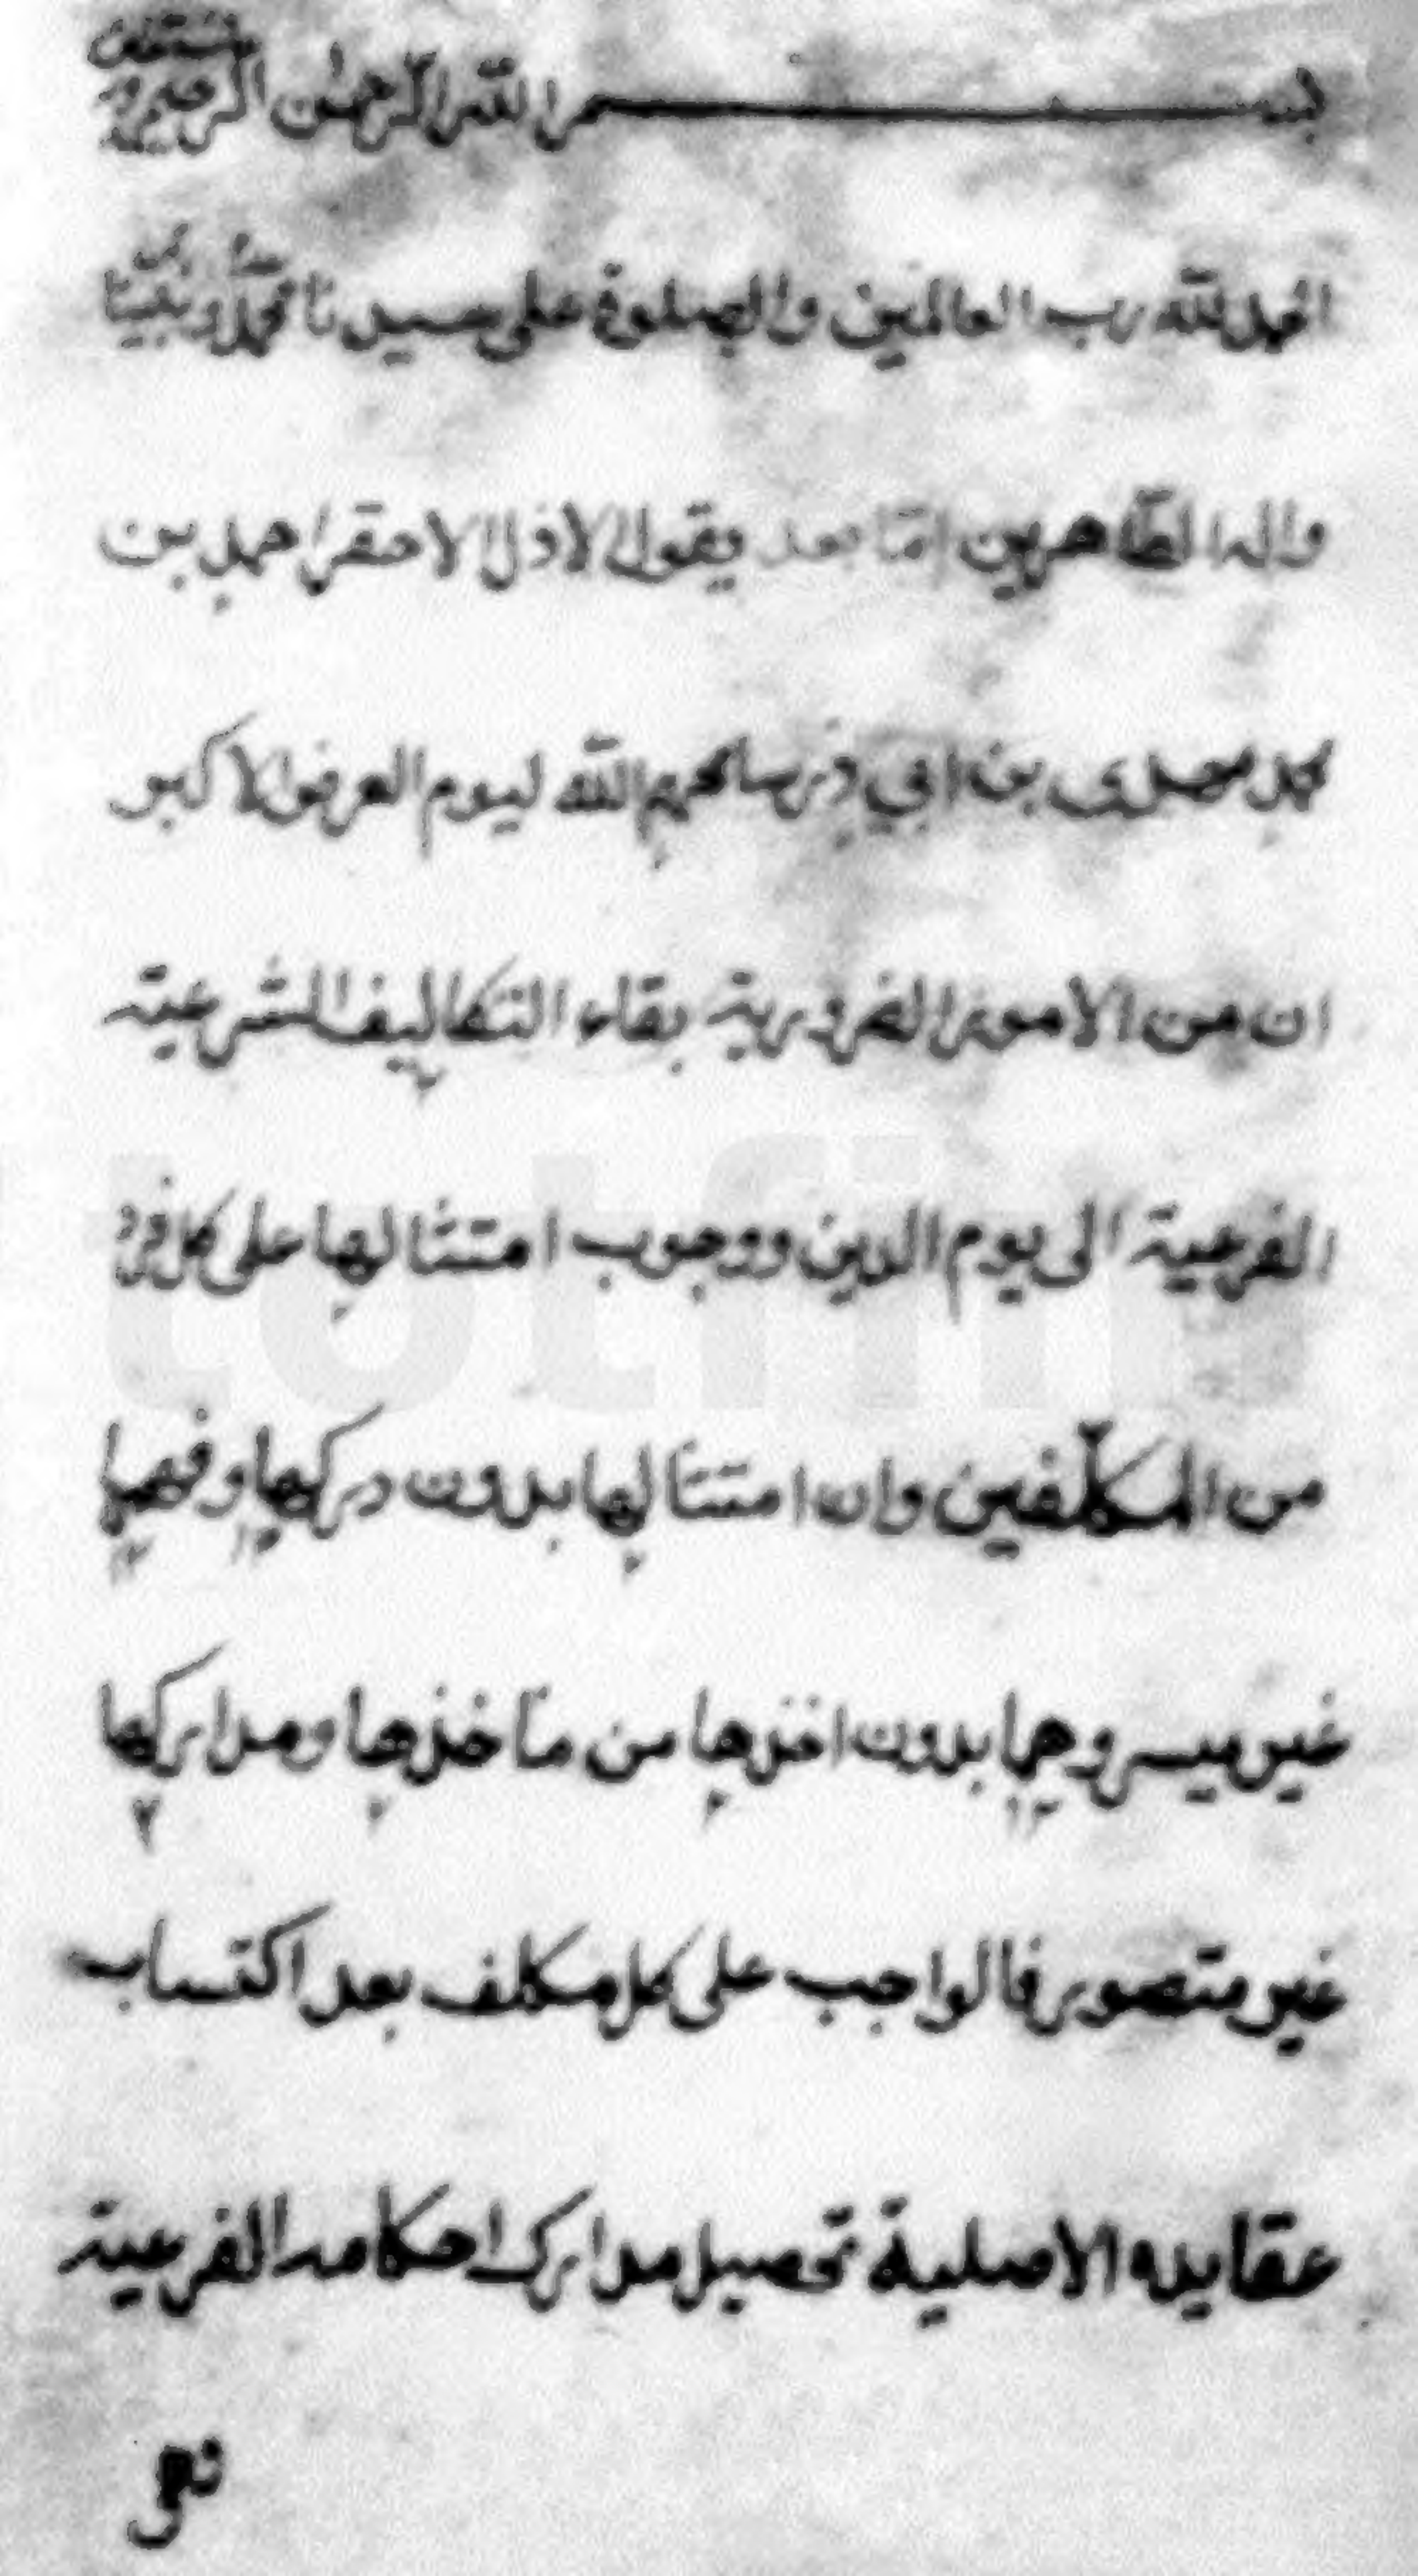 بسم الله الرحمن الرحيم وبه نستعين
الحمد لله رب العالمين والصلوة على سيدنا محمد ونبينا
واله الطاهرين امّا بعد يقول الاذل الاحقر احمد بن
محمد مهدى بن ابي ذر سامحهم الله ليوم العرض الاكبر
ان من الامور الضرورية بقاء التكاليف الشرعية
الفرعية الى يوم الدين ووجوب امتثالها على كل فرد
من المكلّفين وان امتثالها بدون دركها وفهمها
غير ميسر وهما بدون اخذها من مأخذها ومداركها
غير متصور فالواجب على كل مكلف بعد اكتساب
عقايده الاصلية تحصيل مدارك احكامه الفرعية
فهى